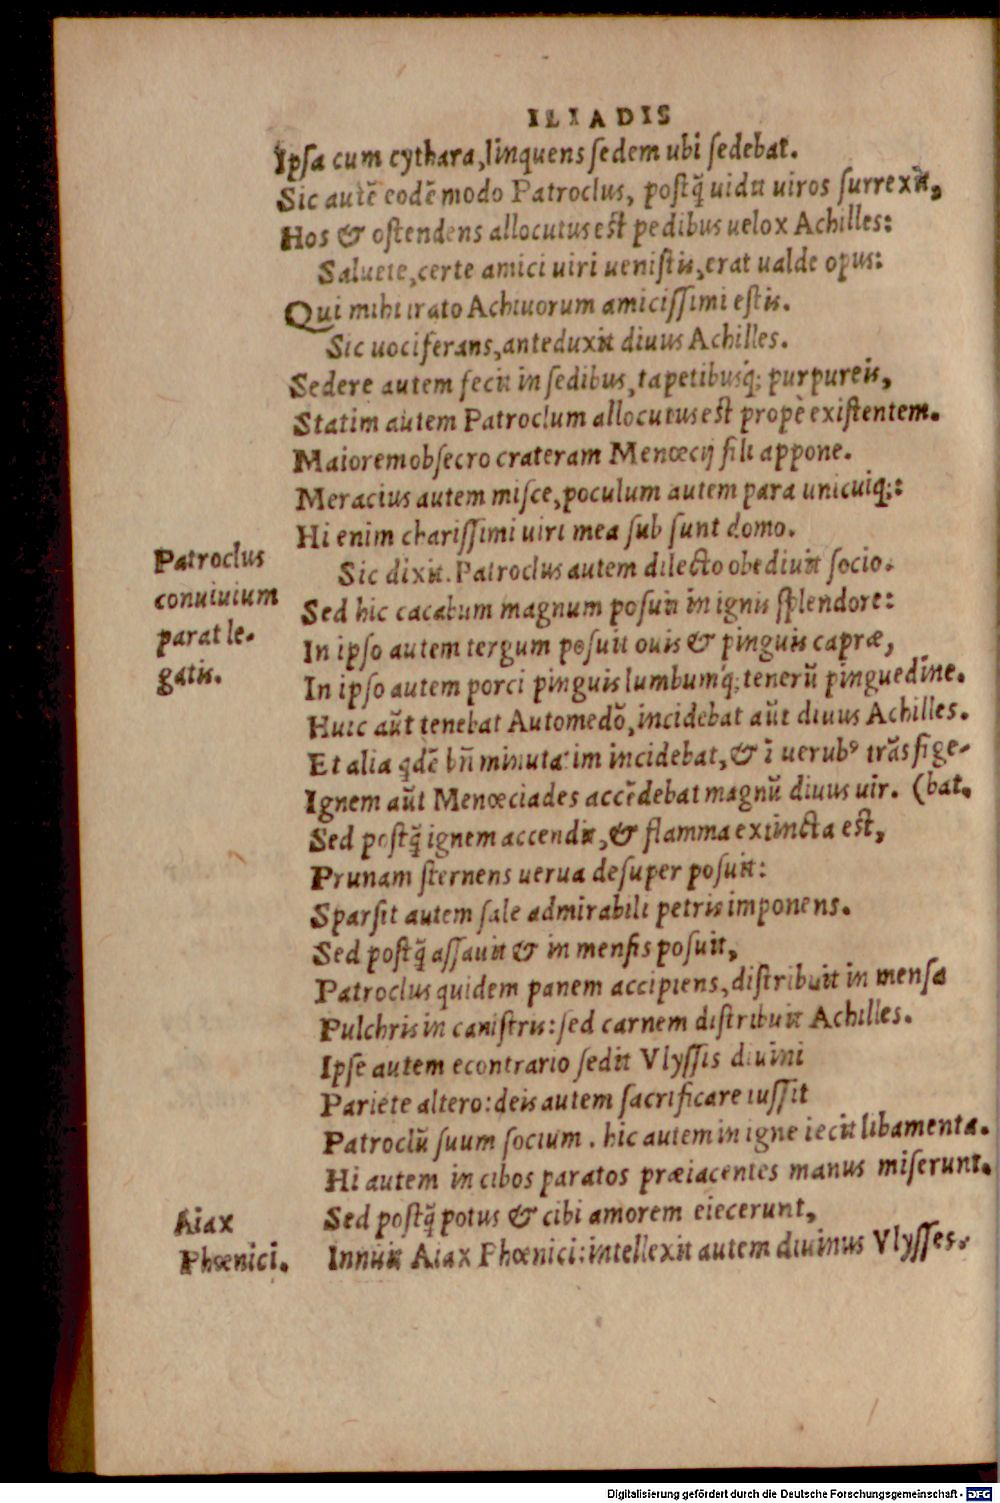 ILIADIS
Ipſa cum cythara, linquens ſedem ubi ſedebat.
Sic autē eodē modo Patroclus, poſtq̃ uidit uiros ſurrexit,
Hos & oſtendens allocutus eſt pedibus uelox Achilles:
Saluete, certe amici uiri ueniſtis, erat ualde opus:
Qui mihi irato Achiuorum amiciſſimi eſtis.
Sic uociferans, anteduxit diuus Achilles.
Sedere autem fecit in ſedibus, tapetibusq́; purpureis,
Statim autem Patroclum allocutus eſt propè exiſtentem.
Maiorem obſecro crateram Menœcij fili appone.
Meracius autem miſce, poculum autem para unicuiq;:
Hi enim chariſſimi uiri mea ſub ſunt domo.
Patroclus
conuiuium
parat le-
gatis.
Sic dixit. Patroclus autem dilecto obediuit ſocio.
Sed hic cacabum magnum poſuit in ignis ſplendore:
In ipſo autem tergum poſuit ouis & pinguis capræ,
In ipſo autem porci pinguis lumbumq́; tenerũ pinguedine.
Huic aũt tenebat Automedõ, incidebat aũt diuus Achilles.
Et alia qdē bñ minutatim incidebat, & ĩ uerubꝰ trãsfige-
Ignem aũt Menœciades accēdebat magnũ diuus uir. (bat.
Sed poſtq̃ ignem accendit, & flamma extincta eſt,
Prunam ſternens uerua deſuper poſuit:
Sparſit autem ſale admirabili petris imponens.
Sed poſtq̃ aſſauit & in menſis poſuit,
Patroclus quidem panem accipiens, diſtribuit in menſa
Pulchris in caniſtris: ſed carnem diſtribuit Achilles.
Ipſe autem econtrario ſedit Vlyſſis diuini
Pariete altero: deis autem ſacrificare iuſſit
Patroclũ ſuum ſocium. hic autem in igne iecit libamenta.
Hi autem in cibos paratos præiacentes manus miſerunt.
Sed poſtq̃ potus & cibi amorem eiecerunt,
Aiax
Phœnici.
Innuit Aiax Phœnici: intellexit autem diuinus Vlyſſes.
Digitalisierung gefördert durch die Deutsche Forschungsgemeinschaft - DFG